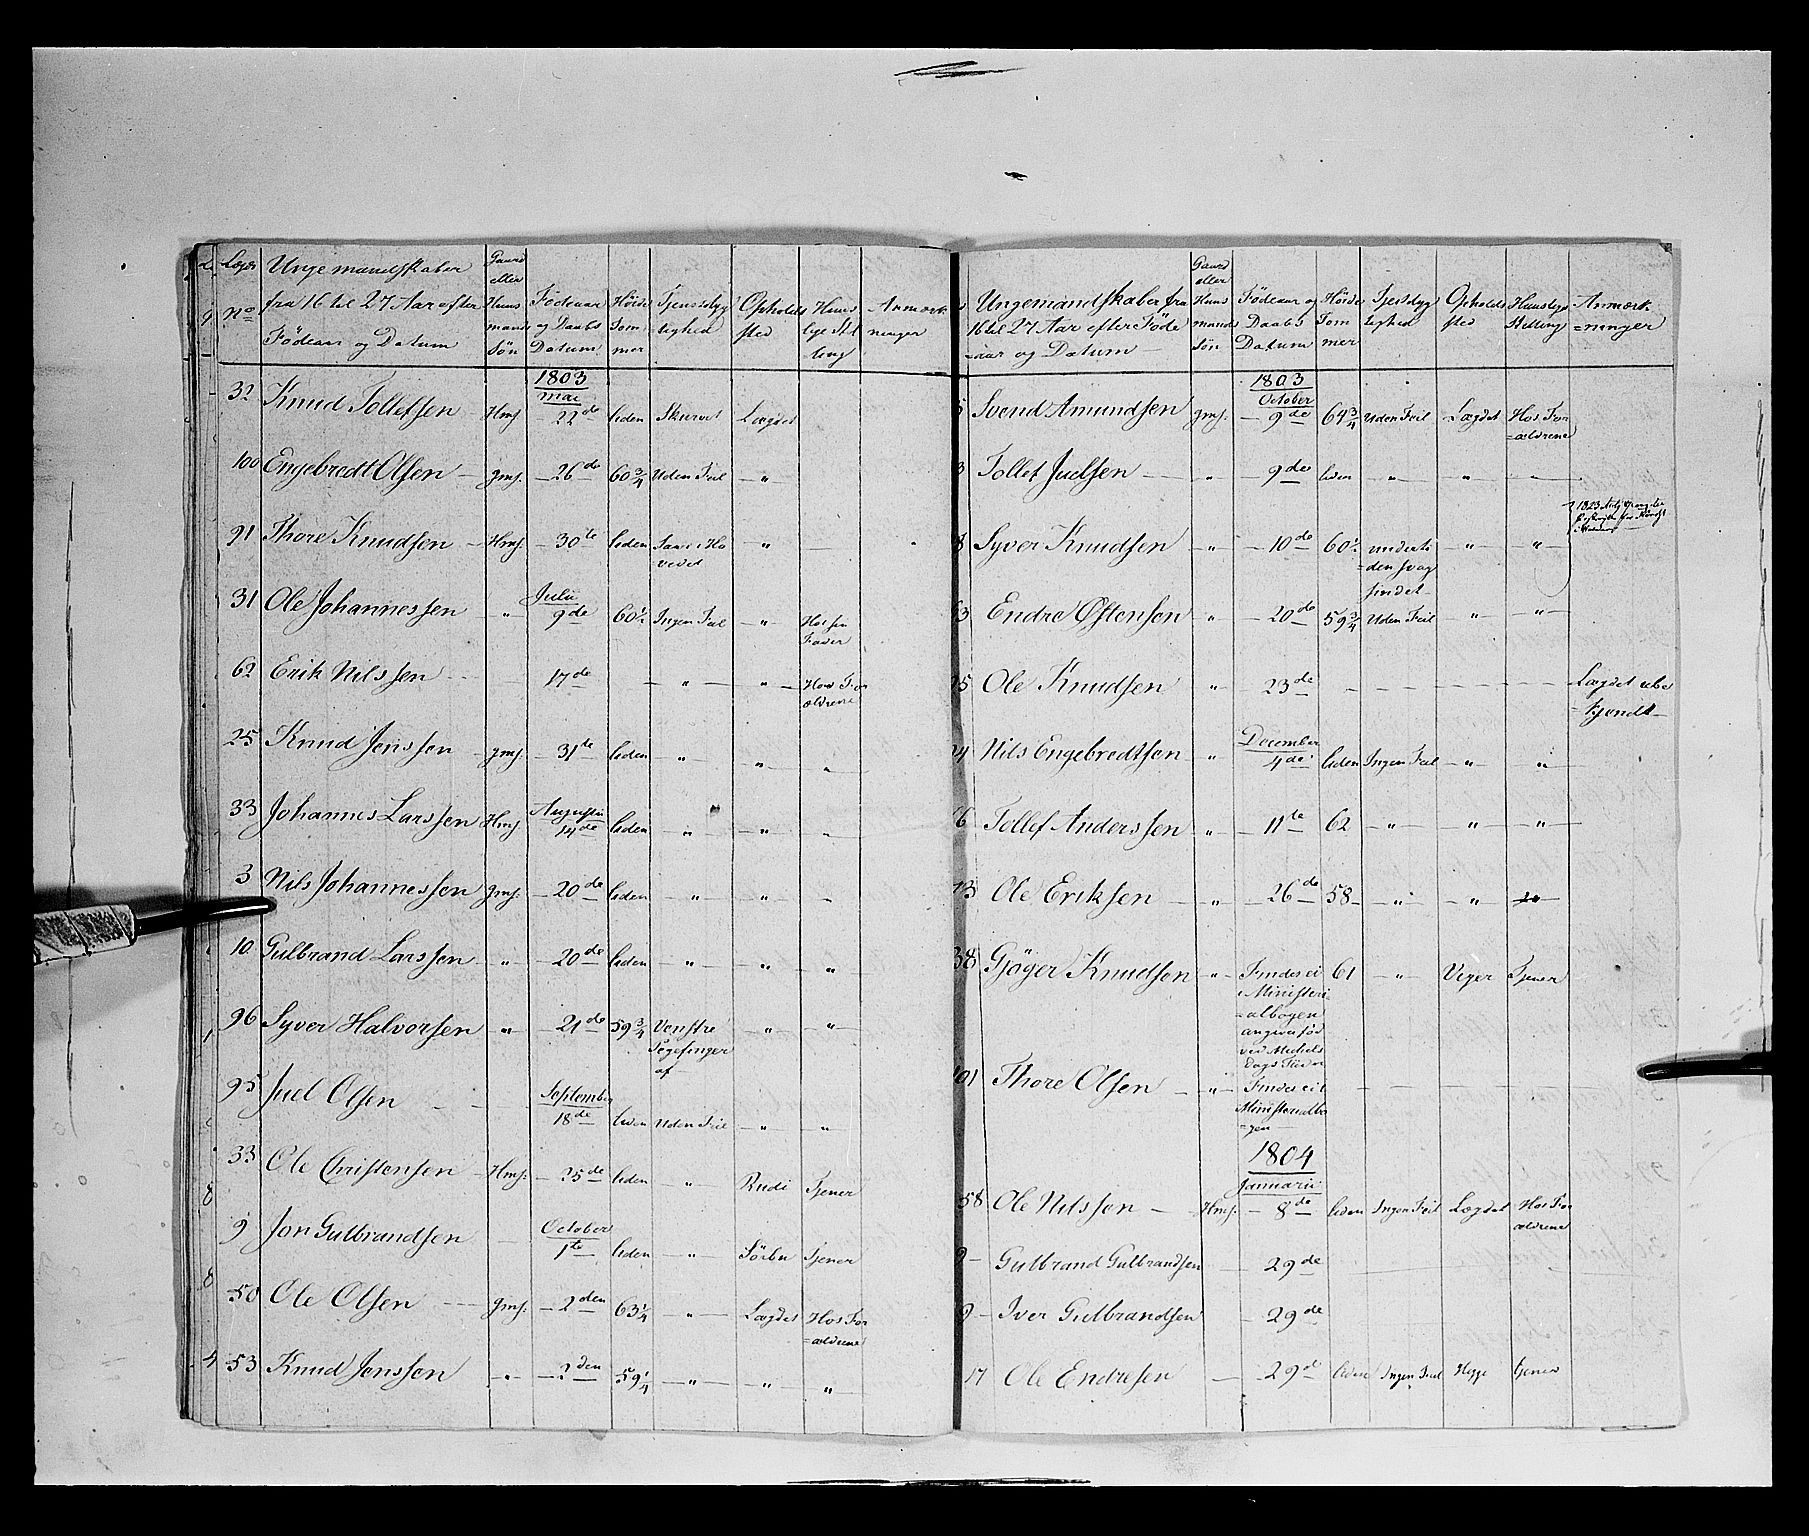 Lægd No Unge mandskaber fra 16 til 27 Aar efter Födeaar og Datum Gaard eller Huus mands Sön Födeaar og Daabs Datum Höide Tommer Tjenstdygtighed Opholds sted Huus lige Stilling Anmærkninger
1803
Mai
32 Knud Tollefsen Hms. 22de liden Skurvet Lægdet
100 Engebredt Olsen — gms. — 26de 60 3/4 Uden Feil — " —
91 Thore Knudsen — Hms. — 30te liden Saar i Ho "
vedet
Julii
31 Ole Johannessen — " — 9de 60 1/2 Ingen Feil — " — Hos sin
Fader
62 Erik Nilssen 17de — " — — " — Hos For
ældrene
25 Knud Jenssen — gms. — 31te liden — " — " "
Augustii
33 Johannes Larssen Hms 14de liden " — " — "
3 Nils Johannessen gms. — 20de liden — " — — " — "
10 Gulbrand Larssen — " — 20de liden — " — " "
96 Syver Halvorsen " — 21de 59 3/4 Venstre — " — "
Pegefinger
af
September
95 Juel Olsen 18de liden Uden Feil — " — "
33 Ole Christensen — Hms. — 25de liden " Rudi Tjener
October
9 Jon Gulbrandsen 1te liden — " — Sörbu Tjener
50 Ole Olsen gms. — 2den 63 1/4 — " — Lægdet Hos For
=ældrene
53 Knud Jenssen — " — 2den 59 1/4 — " — " "
Ungemandskaber fra 16 til 27 Aar efter Föde=aar og Datum — Gaard eller Huus mands Sön Födeaar og Daabs Datum Höide Tommer Tjenstdygtighed Opholds sted Huuslige Stilling Anmærk=ninger
1803
October
5 Svend Amundsen gms. — 9de 64 3/4 Uden Feil Lægdet Hos For
=ældrene
3 Tollef Juelsen — " — 9de liden — " — " — " —
8 Syver Knudsen — " — — 10de 60 1/2 underti — " — "
=den svag
sindet
63 Endre Östensen " — 20de 59 3/4 Uden Feil — " — — " —
25 Ole Knudsen " — 23de — Lægdet ube
=kjendt
December
24 Nils Engebredtsen " — 4de liden Ingen Feil — " — "
6 Tollef Anderssen — " — 11te 62 — " — " — " —
73 Ole Eriksen — " — 26de 58 — " — — " —
38 Gjöger Knudsen — " — Findes ei 61 — " — Viger Tjener
i Ministeri
=albogen
angives föd
ved Michels
dags Tider
101 Thore Olsen — — " — Findes ei i
Ministerialbo
=gen
1804
Januarii
58 Ole Nilssen — Hms. — 8de liden Ingen Feil Lægdet Hos For
ældrene
9 — Gulbrand Gulbrandsen — 29de
9 — Iver Gulbrandsen — 29de
17 Ole Endresen — 29de liden Ingen Feil Hegge tjener